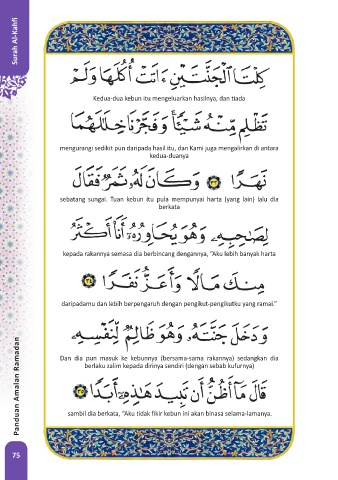 Surah Al-Kahfi
كِلْتَا الْجَنَّتَيْنِ ءَاتَتْ أُكُلَهَا وَلَمْ
Kedua-dua kebun itu mengeluarkan hasilnya, dan tiada
تَظْلِم مِّنْهُ شَيْئًا ۚ وَفَجَّرْنَا خِلَٰلَهُمَا
mengurangi sedikit pun daripada hasil itu, dan Kami juga mengalirkan di antara
kedua-duanya
نَهَرًا ٣٣ وَكَانَ لَهُۥ ثَمَرٌ فَقَالَ
sebatang sungai. Tuan kebun itu pula mempunyai harta (yang lain) lalu dia
berkata
لِصَٰحِبِهِۦ وَهُوَ يُحَاوِرُهُۥٓ أَنَا۠ أَكْثَرُ
kepada rakannya semasa dia berbincang dengannya, “Aku lebih banyak harta
مِنكَ مَالًا وَأَعَزُّ نَفَرًا ٣٤
daripadamu dan lebih berpengaruh dengan pengikut-pengikutku yang ramai.”
وَدَخَلَ جَنَّتَهُۥ وَهُوَ ظَالِمٌ لِّنَفْسِهِۦ
Dan dia pun masuk ke kebunnya (bersama-sama rakannya) sedangkan dia
berlaku zalim kepada dirinya sendiri (dengan sebab kufurnya)
قَالَ مَآ أَظُنُّ أَن تَبِيدَ هَٰذِهِۦٓ أَبَدًا ٣٥
sambil dia berkata, “Aku tidak fikir kebun ini akan binasa selama-lamanya.
Panduan Amalan Ramadan
75